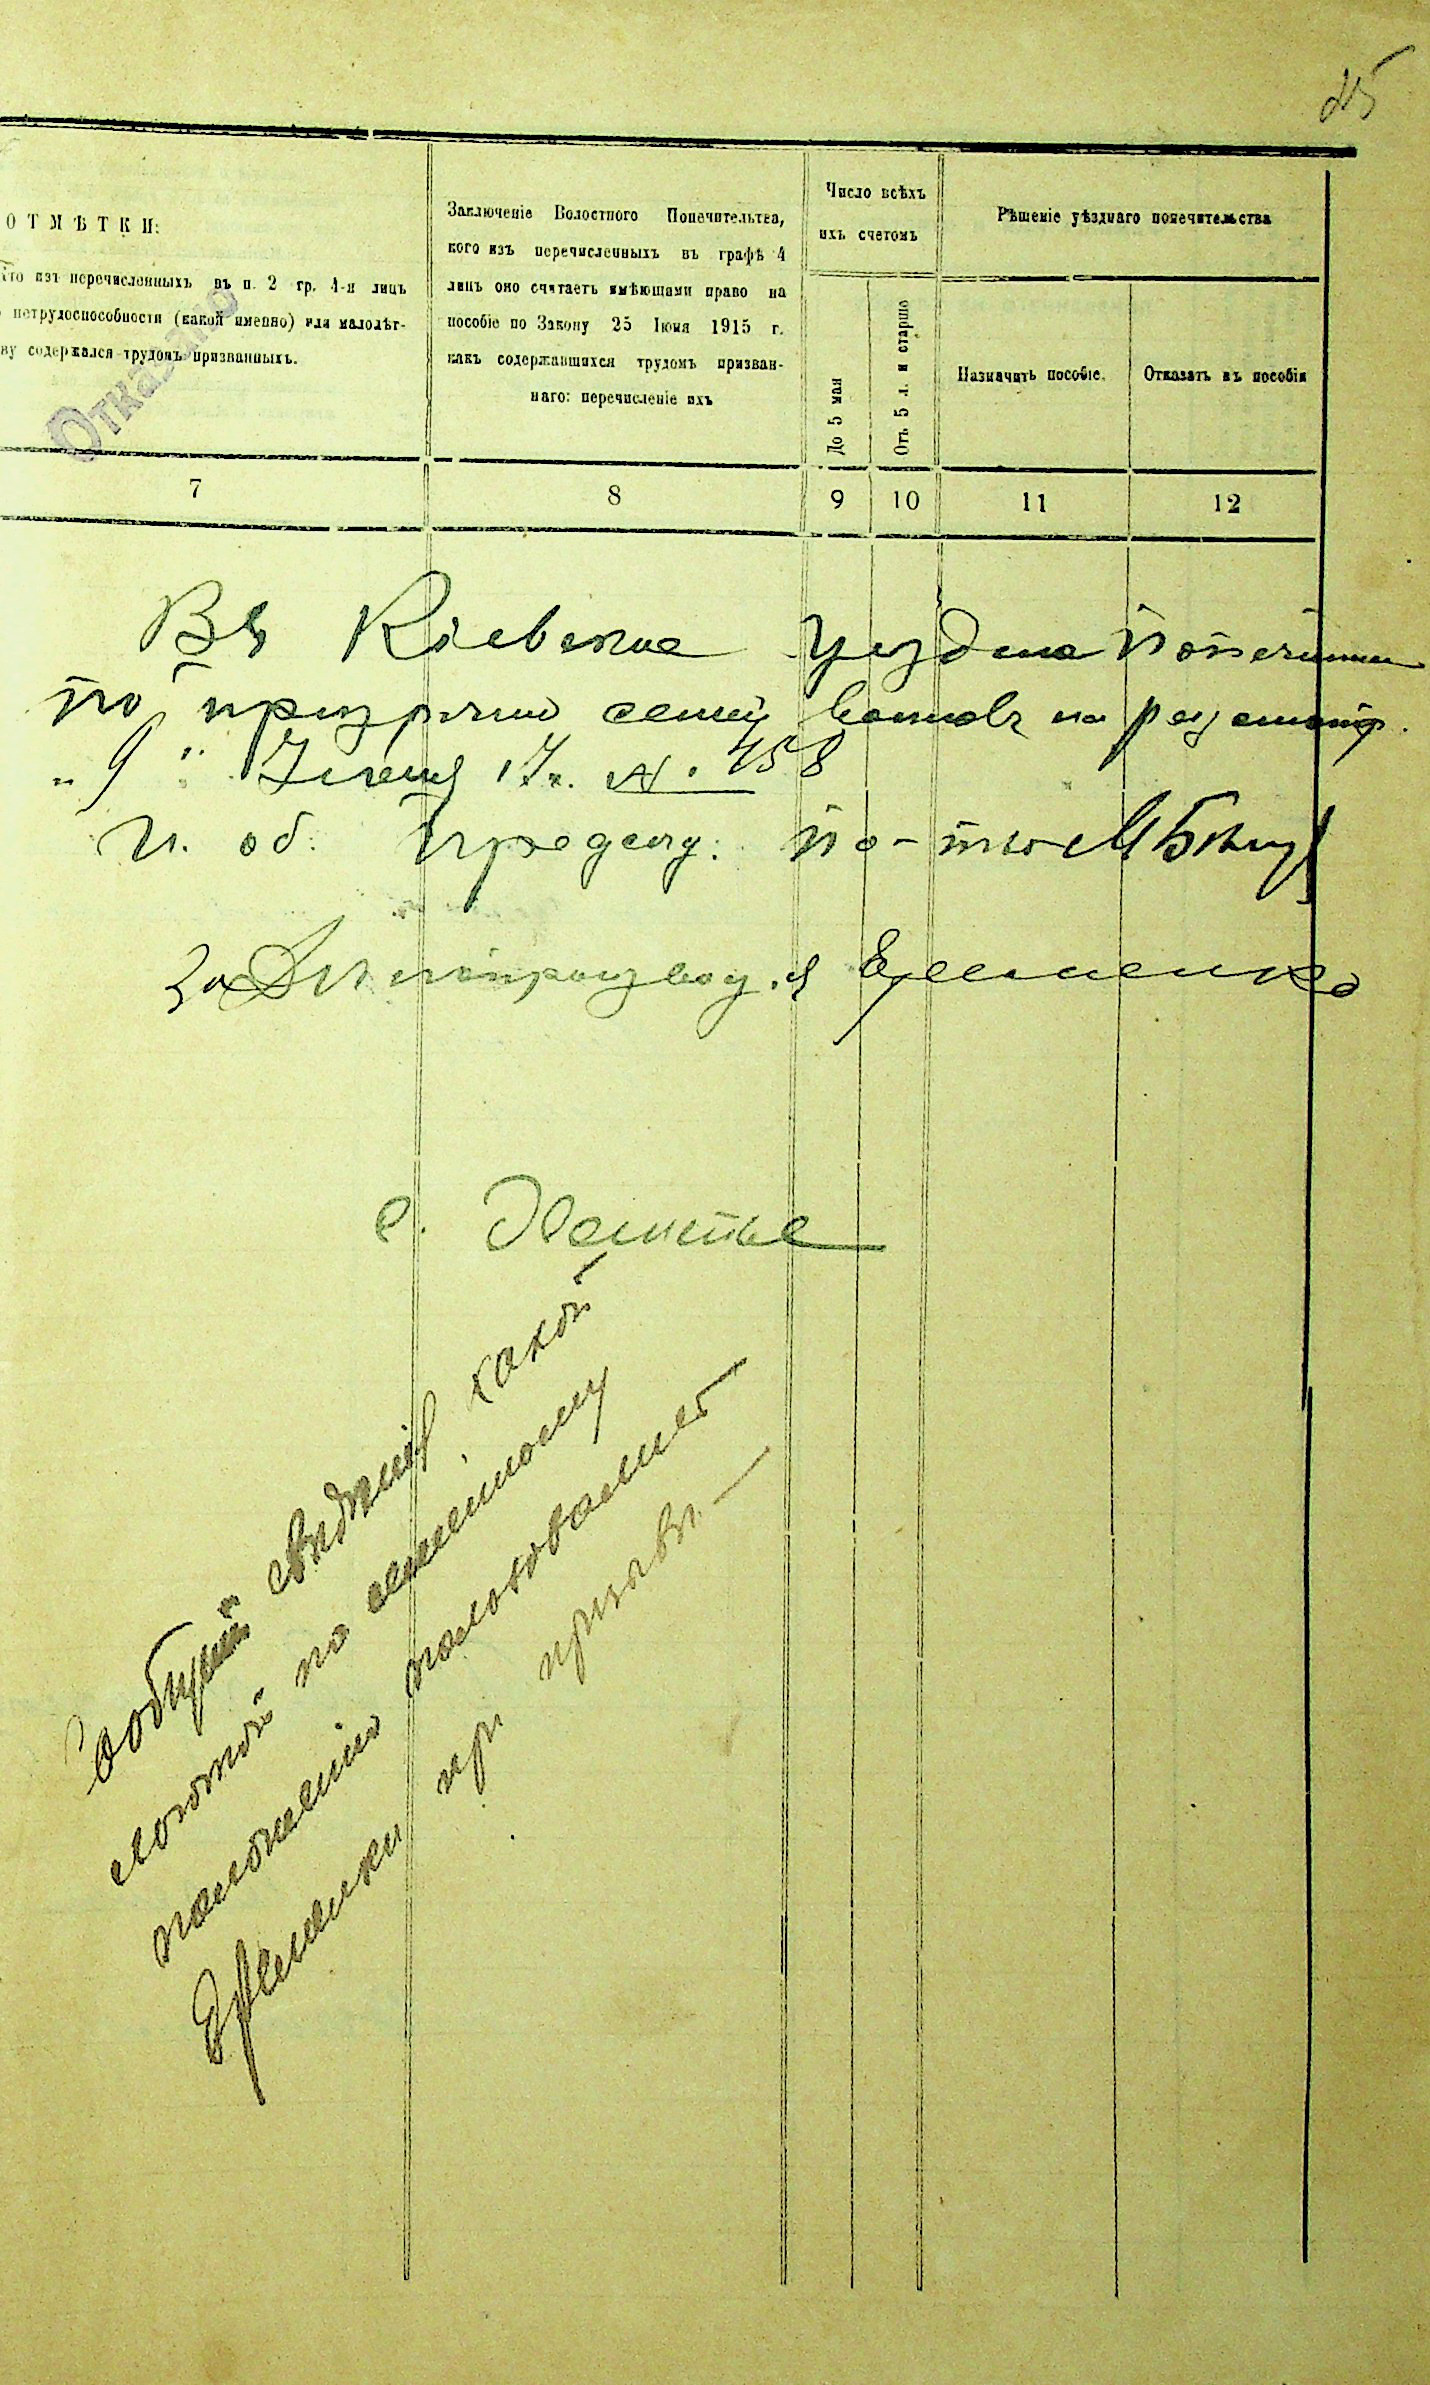 25
ОТМѢТКИ:
Кто изъ перечисленныхъ въ п. 2 гр. 4-й лицъ
нетрудоспособности (какой именно) или малолѣт-
ву содержался трудомъ призванныхъ.
Отказано
Заключеніе Волостного Попечительтва,
кого изъ перечисленныхъ въ графѣ 4
лицъ оно считаетъ имѣющими право на
пособіе по Закону 25 Іюня 1915 г.
какъ содержавшихся трудомъ призван-
наго: перечисленіе ихъ
Число всѣхъ
ихъ счетомъ
До 5 мая
Отъ 5 л. и старше
Рѣшеніе уѣзднаго попечительства
Назначить пособіе.
Отказать въ пособіи
7 8 9 10 11 12
Въ Кіевское
по призрѣнію семей на
„9" 17г. № 458
И. об. Предсѣд. По-тва
Дѣлопроизвод. Я Ефименко
с.
Сообщить свѣдѣнія какой
льготой по семейному
положенію пользовался
Ефименко при призывѣ